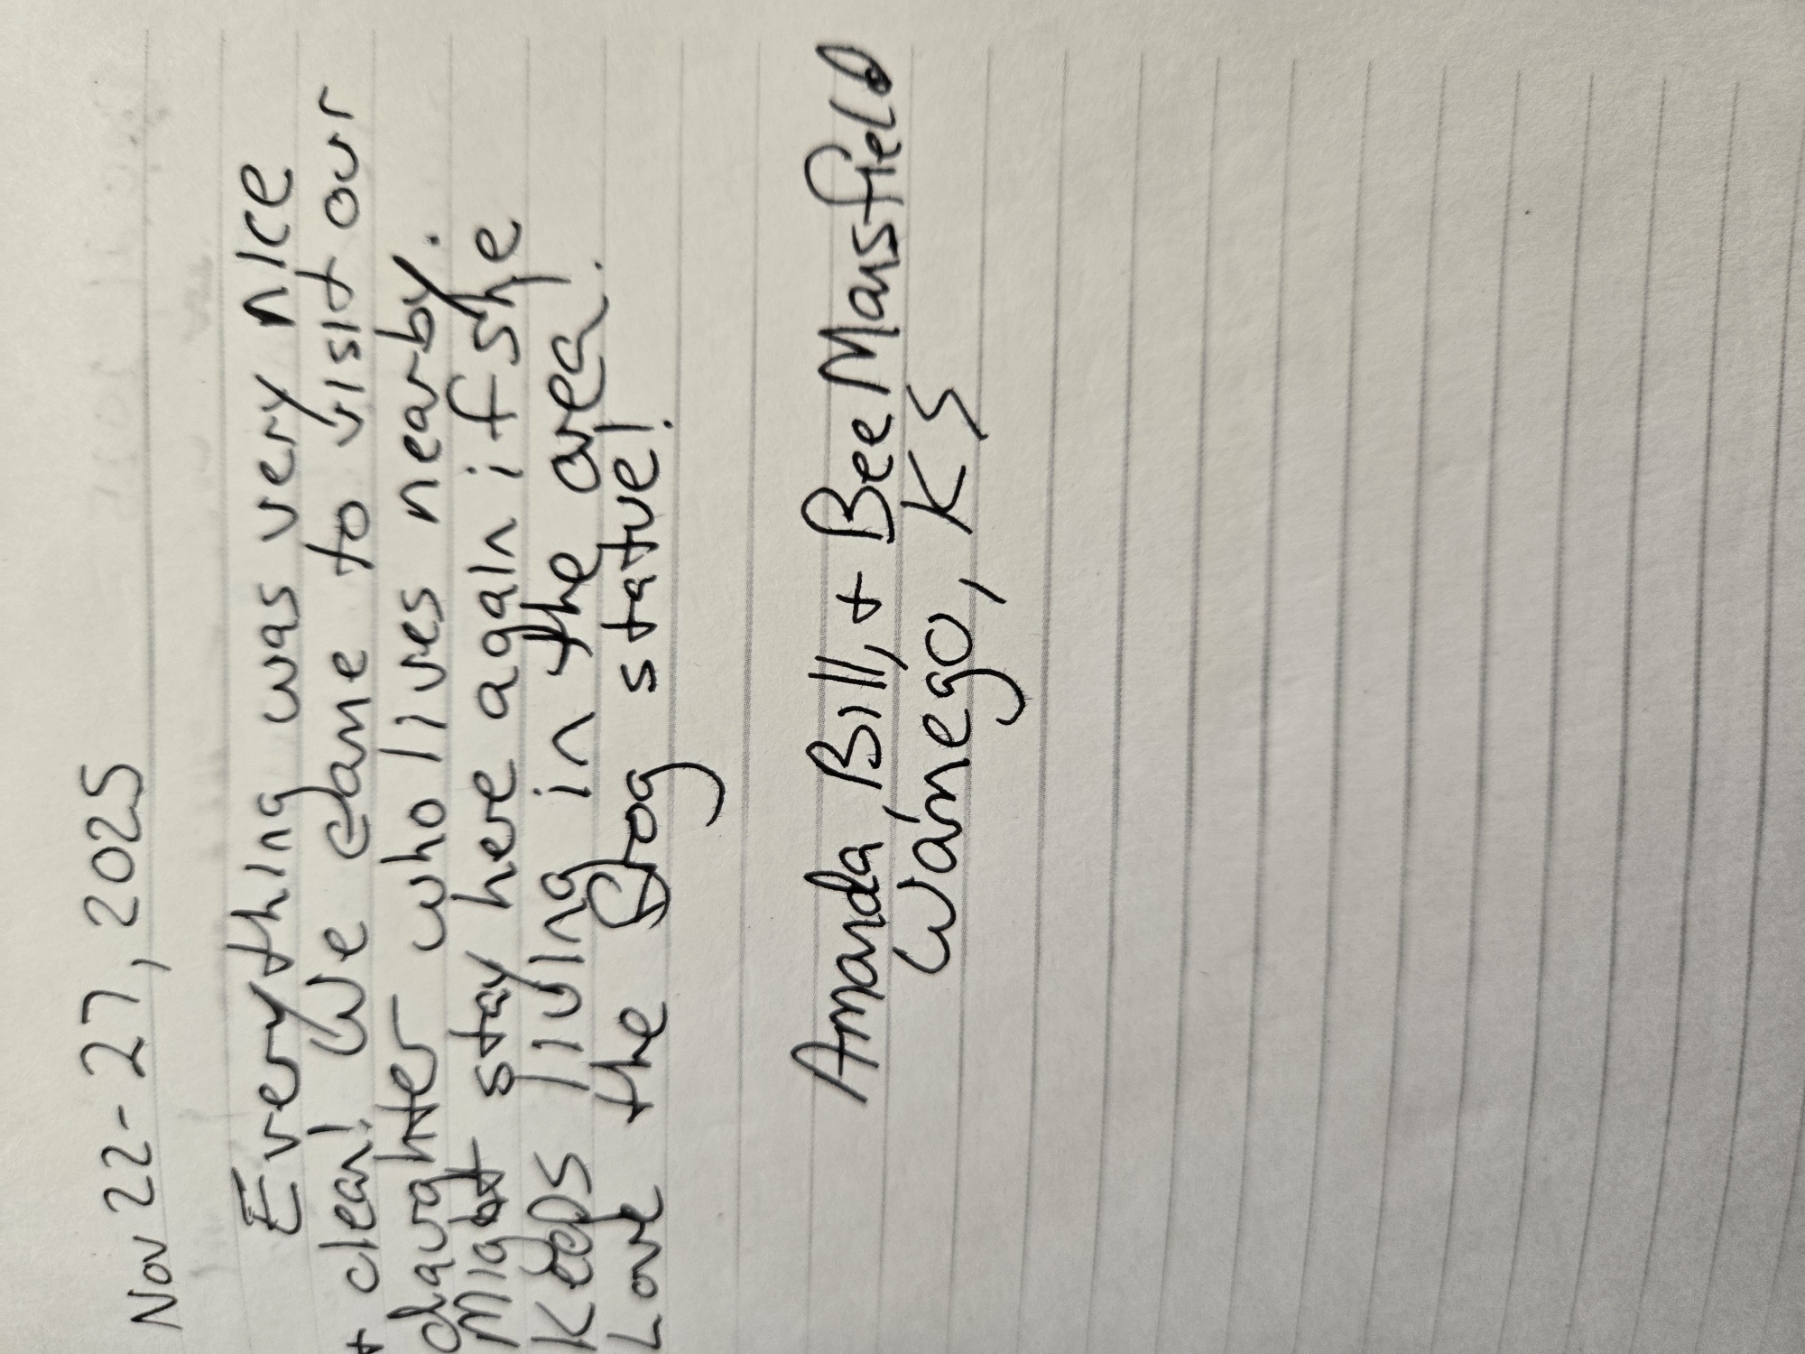 Nov 22-27, 2025
Everything was very nice
+ clean! We came to visit our
daughter who lives nearby.
Might stay here again if she
Keeps living in the area.
Love the frog statue!
Amanda, Bill, + Bee Mansfield
Wamego, KS